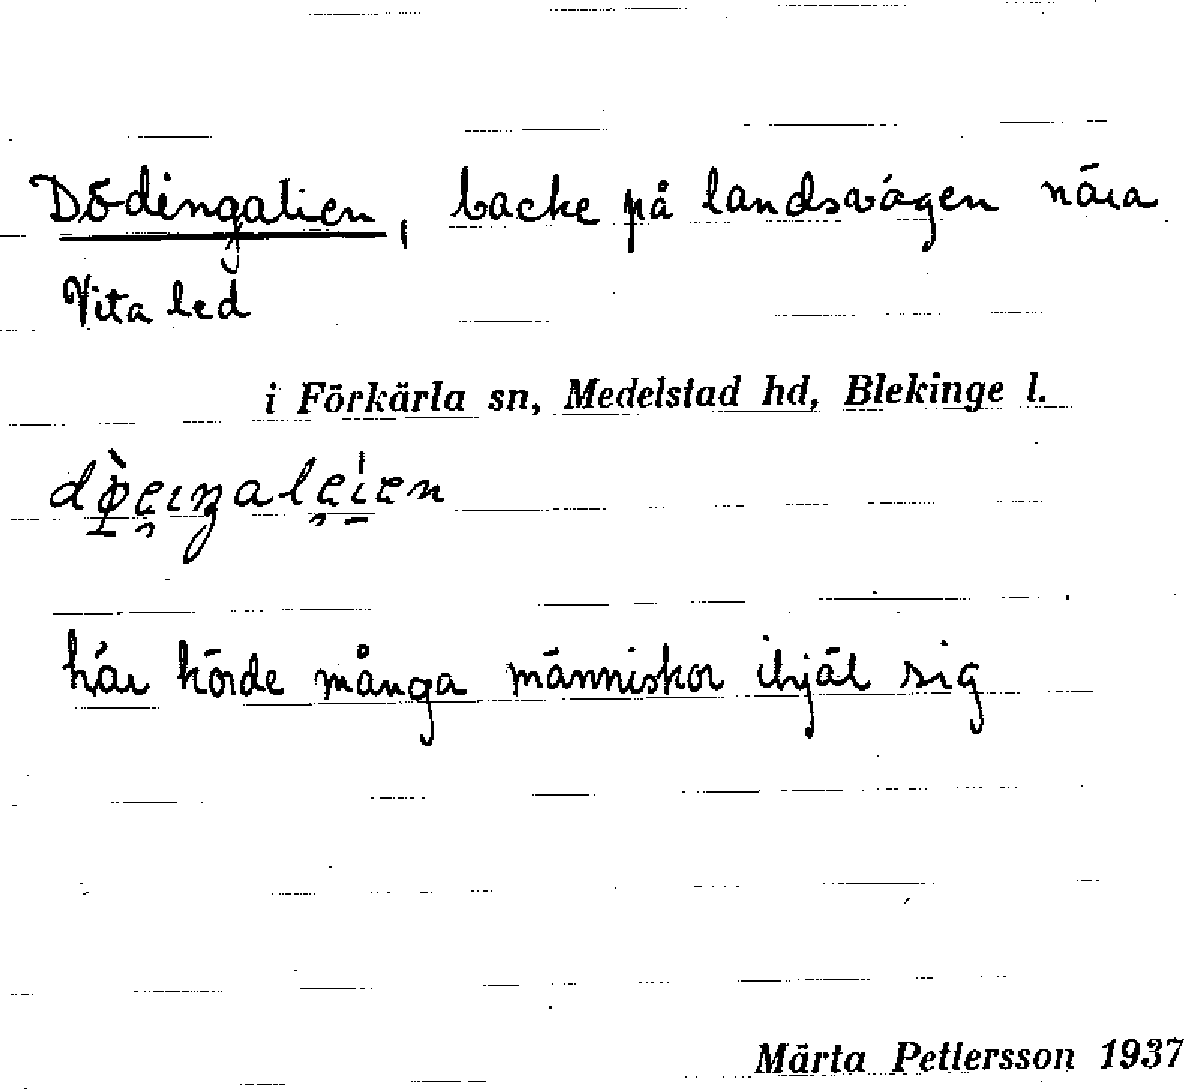 Dödingalien, backe på landsvägen nära
Vita led
i Förkärla sn, Medelstad hd, Blekinge l.
här körde många människor ihjäl sig
Märta Pettersson 1937